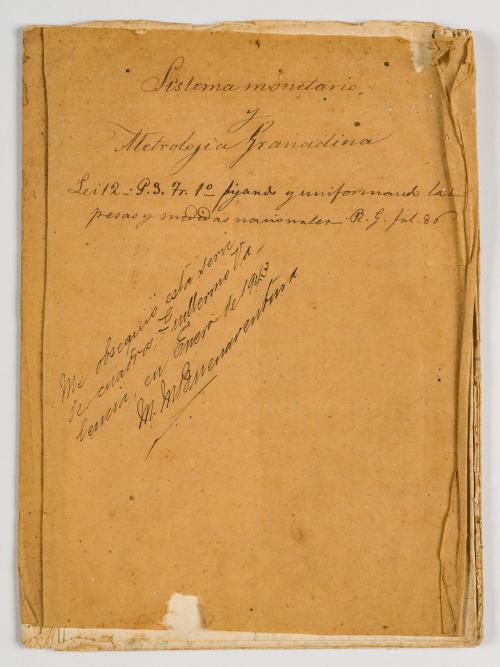 Sistema monetario,
y
Metrolojia Granadina
Lei 12 - P. 3. Tr. 1º fijando y uniformando las
pesas y medidas nacionales. R. G. fol. 86
Me obsequió esta serie
de cuadros, Guillermo Va-
lencia, en Enero de 1943
M. M. Buenaventura